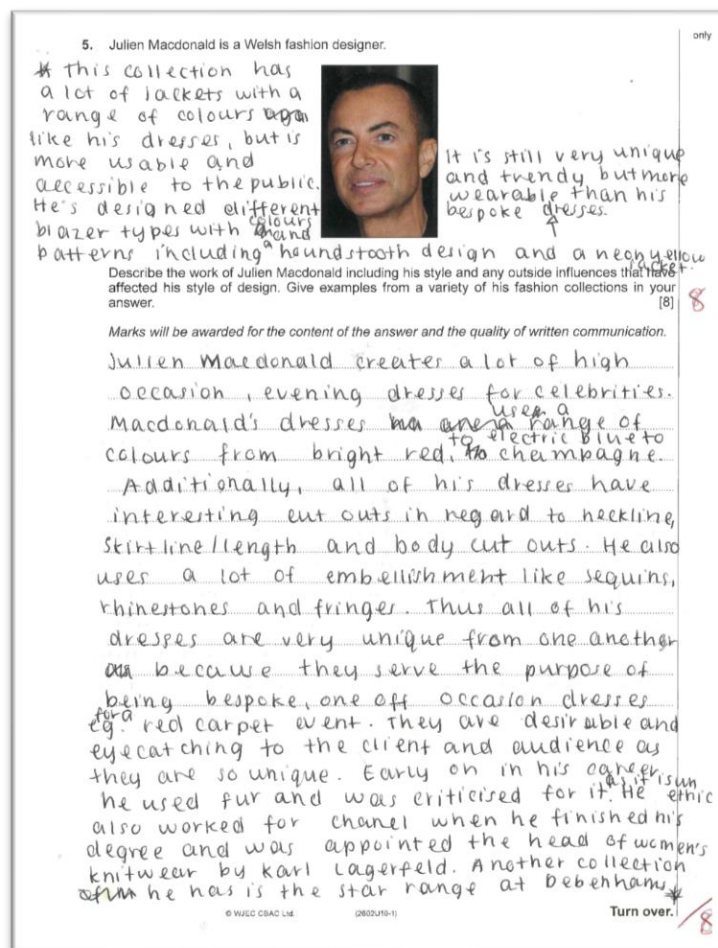 only
5. Julien Macdonald is a Welsh fashion designer.
* This collection has
a lot of jackets with a
range of colours
like his dresses, but is
more usable and
accessible to the public.
He's designed different
blazer types with colours and
patterns including a houndstooth design and a neon yellow
jacket.
It is still very unique
and trendy but more
wearable than his
bespoke dresses.
Describe the work of Julien Macdonald including his style and any outside influences that have
affected his style of design. Give examples from a variety of his fashion collections in your
answer. [8]
8
Marks will be awarded for the content of the answer and the quality of written communication.
Julien Macdonald creates a lot of high
occasion, evening dresses for celebrities.
Macdonald's dresses uses a range of
colours from bright red, to electric blue to champagne.
Additionally, all of his dresses have
interesting cut outs in regard to neckline,
skirtline/length and body cut outs. He also
uses a lot of embellishment like sequins,
rhinestones and fringes. Thus all of his
dresses are very unique from one another
because they serve the purpose of
being bespoke, one off occasion dresses
eg. for a red carpet event. They are desirable and
eyecatching to the client and audience as
they are so unique. Early on in his career
he used fur and was criticised for it as it is unethic. He
also worked for chanel when he finished his
degree and was appointed the head of women's
knitwear by Karl Lagerfeld. Another collection
he has is the star range at Debenhams *
© WJEC CBAC Ltd. (2602U10-1) Turn over.
/8